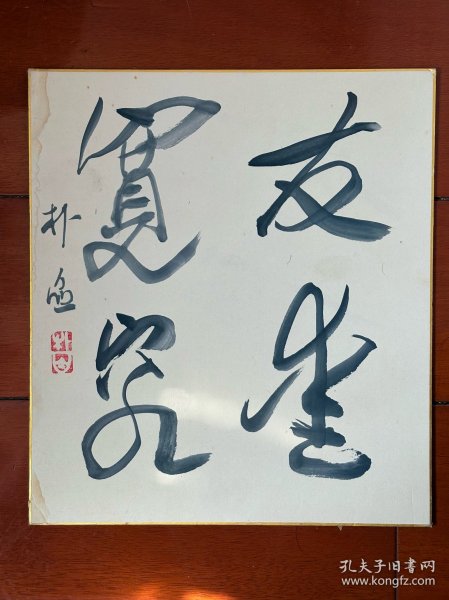 友愛
寬容
朴
孔夫子旧书网
www.kongfz.com